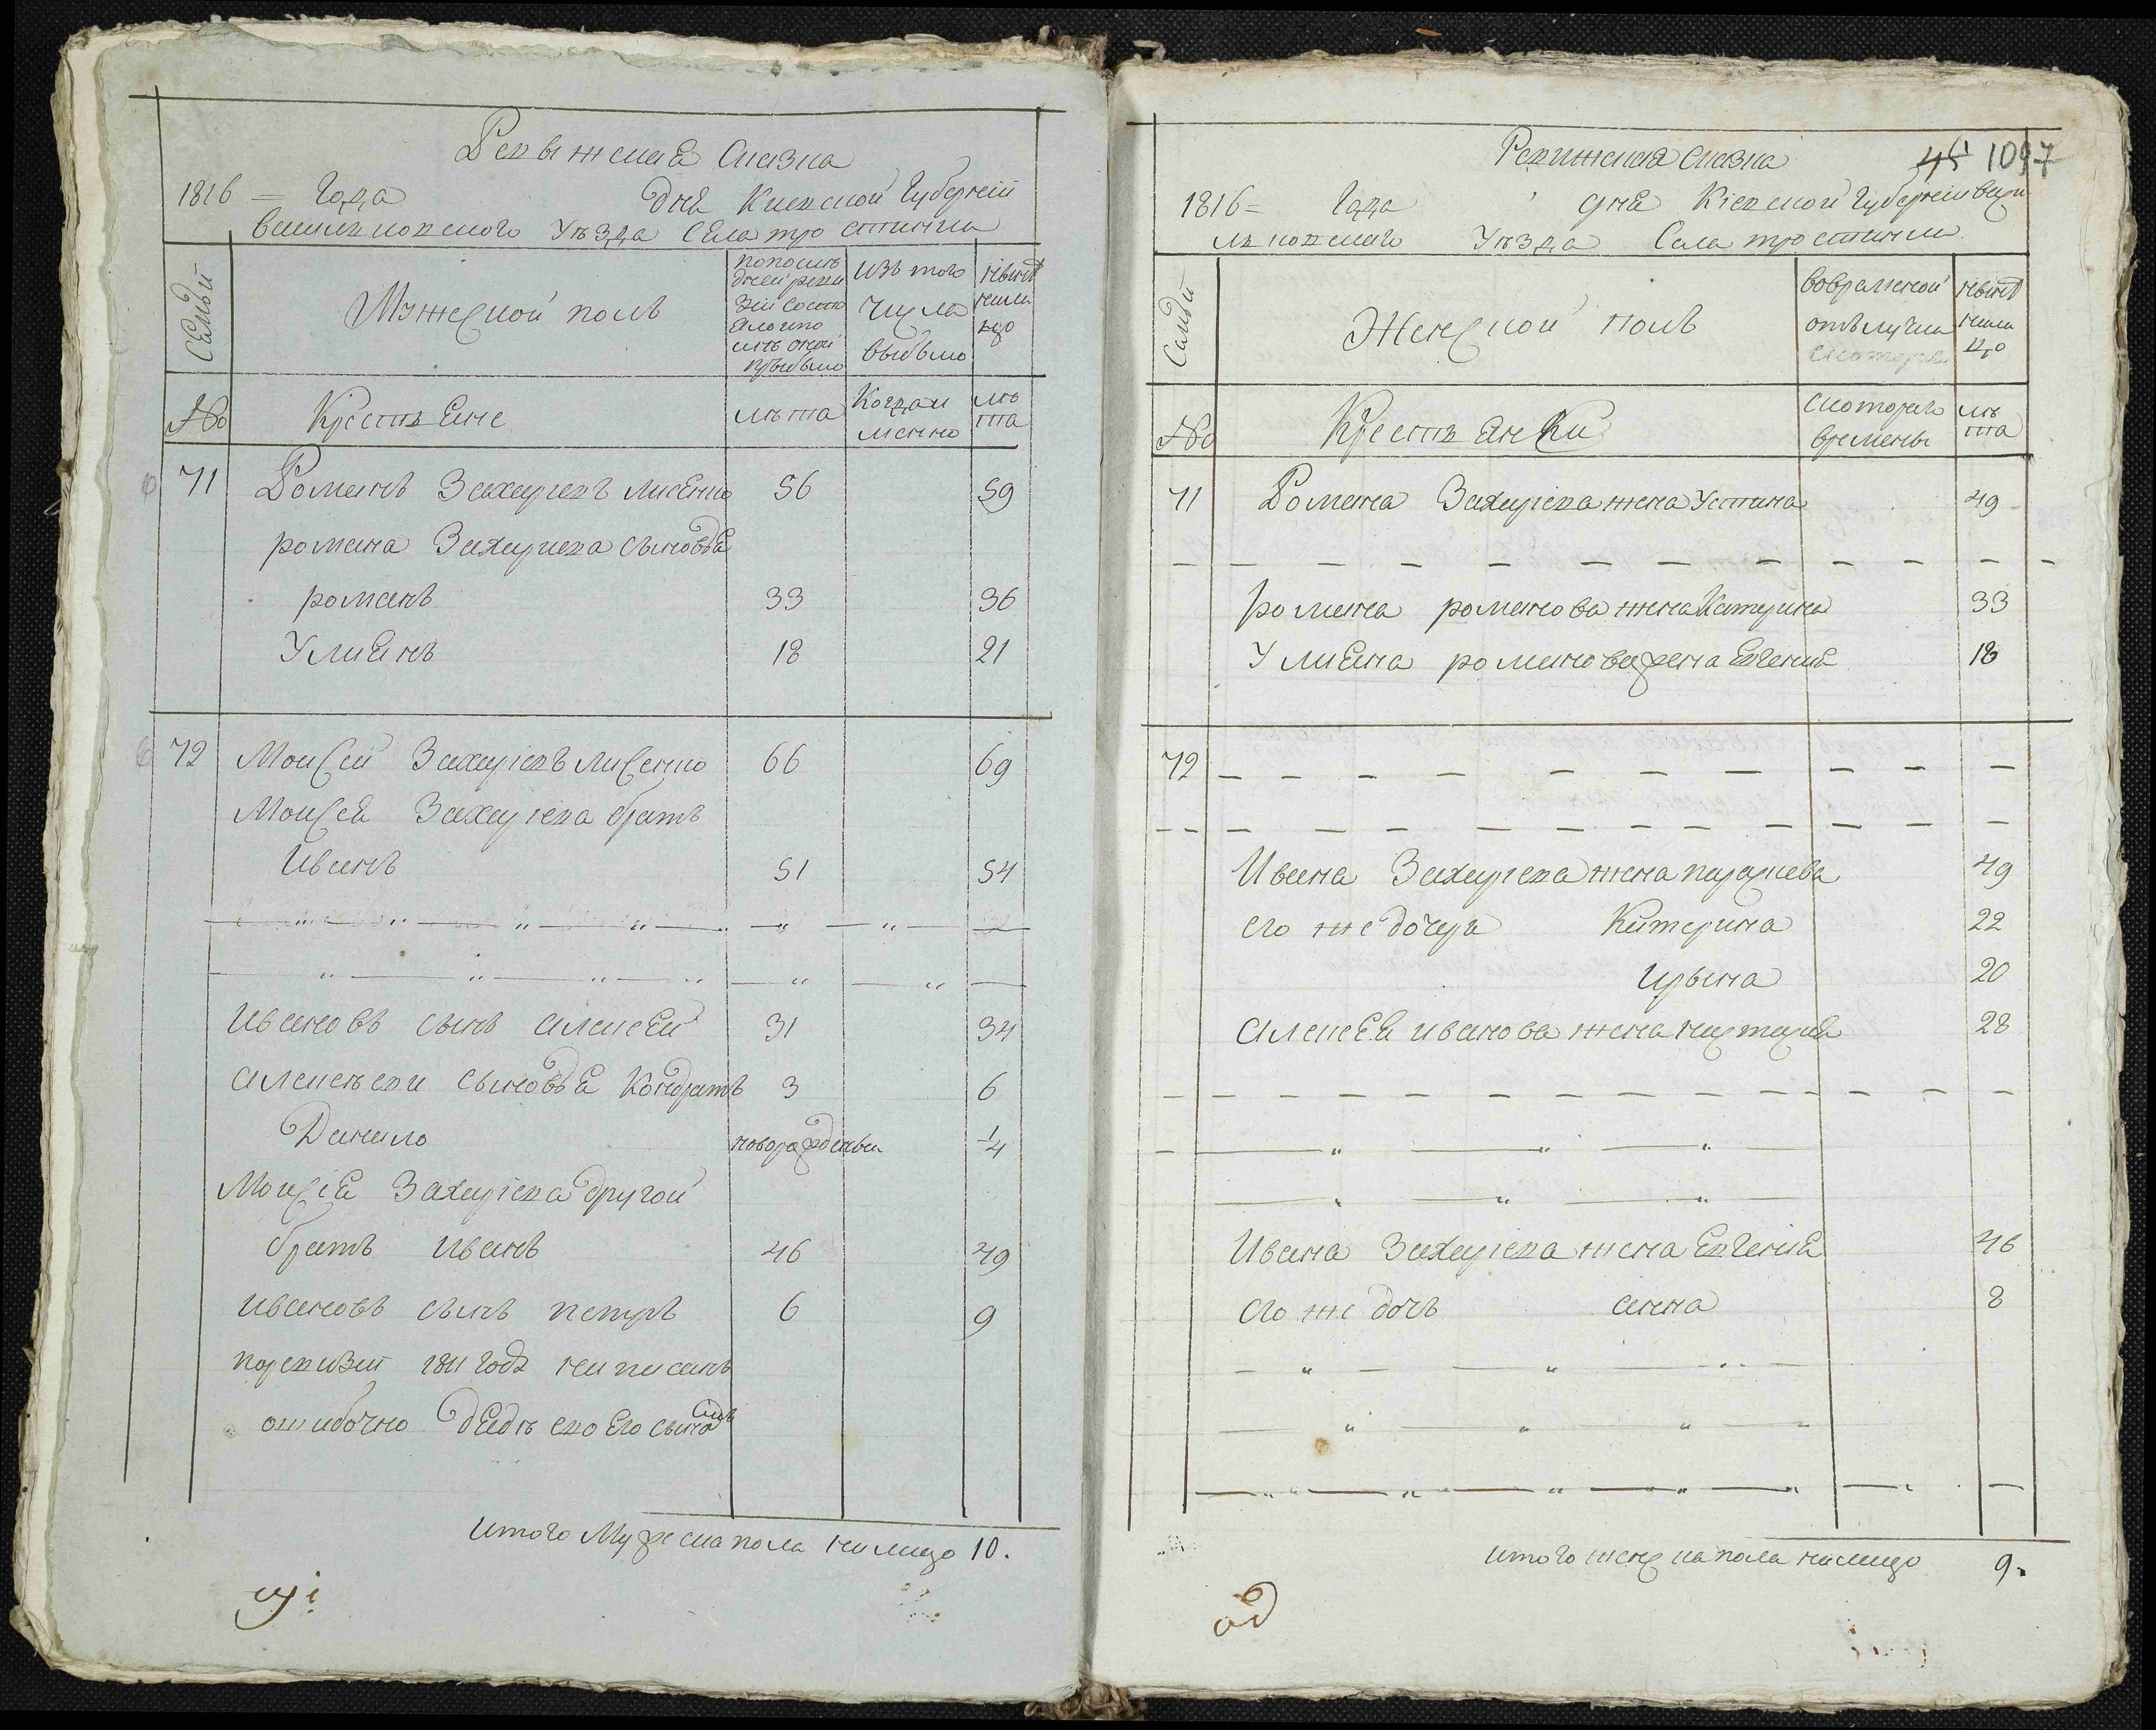 Ревыжская Сказка
1816 = Года дня Киевской Губерний
васильковского Уѣзда Села тростинки
Семьи
Мужеской полъ
по последней ревизии состояло и после оной прибыло
Изъ того числа выбыло
Нынѣ на лицо
№
Крестьяне
лѣта
Когда именно
лѣта
71 Романъ Захариевъ лисенко 56 59
романа Захариева сыновья
романъ 33 36
Улиянъ 18 21
72 Моисей Захаріевъ лисенко 66 69
Моисея Захаріева братъ
Иванъ 51 54
Ивановъ сынъ алексей 31 34
алексѣеви сыновья Кондратъ 3 6
Данило новорожденый 1/4
Моисія Захаріева другой
братъ иванъ 46 49
ивановъ сынъ петръ 6 9
поревизий 1811 года написанъ
ошибочно
итого Мужеска пола налицо 10.
Ревижская сказка
45 1097
1816 = Года дня Кіевской Губерніи васи
льковскаго Уѣзда Села тростинки
Семьи
Женской полъ
вовременной отълучки
Нынѣ на лицо
№
Крестьянки
скоторого времены
лѣта
71 Романа Захаріева жена Устина 49
романа романова жена Катерина 33
Улияна романова жена Евгения 18
72
Ивана Захариева жена параскева 49
его же дочеря Катерина 22
Ирына 20
алексея иванова жена настасия 28
Ивана Захаріева жена Евгения 46
его же дочъ анна 8
итого женска пола налицо 9.